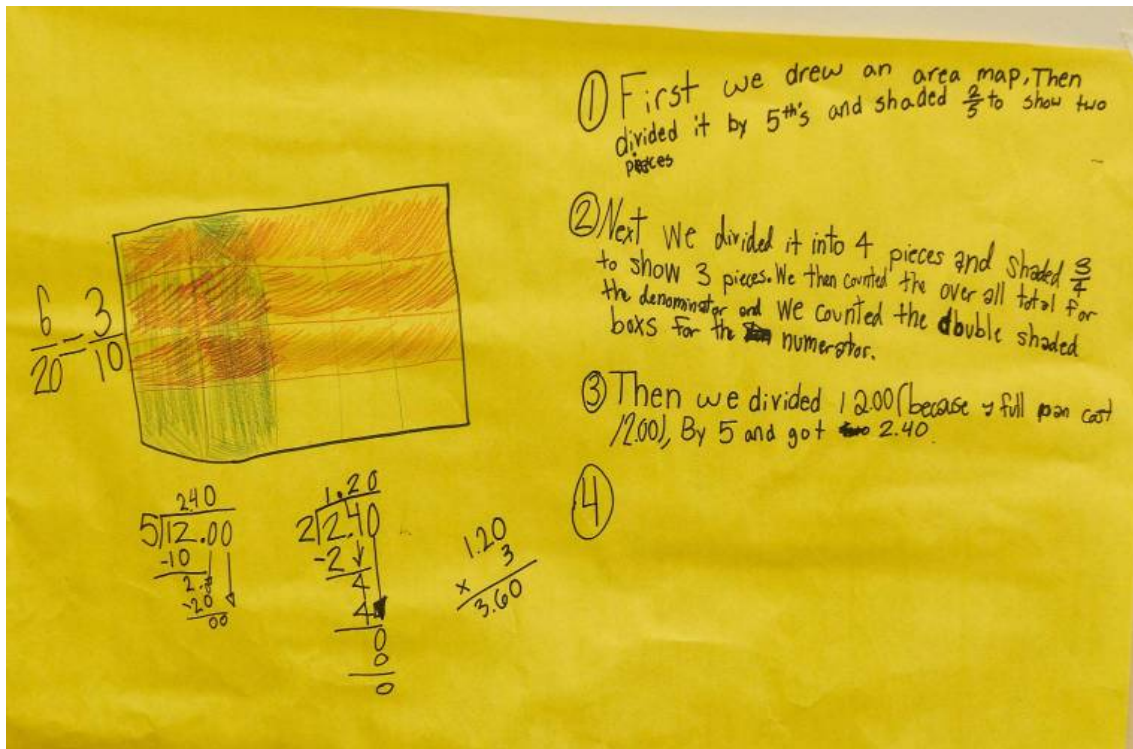 ① First we drew an area map. Then
divided it by 5th's and shaded 2/5 to show two
pieces
② Next We divided it into 4 pieces and shaded 3/4
to show 3 pieces. We then counted the over all total for
the denominator and we counted the double shaded
boxs for the numerator.
③ Then we divided 12.00 (because a full pan cost
12.00), By 5 and got 2.40.
④
6/20 = 3/10
2.40
5)12.00
-10
2.0
-20
00
1.20
2)2.40
-2
4
4
0
0
0
1.20
x 3
3.60